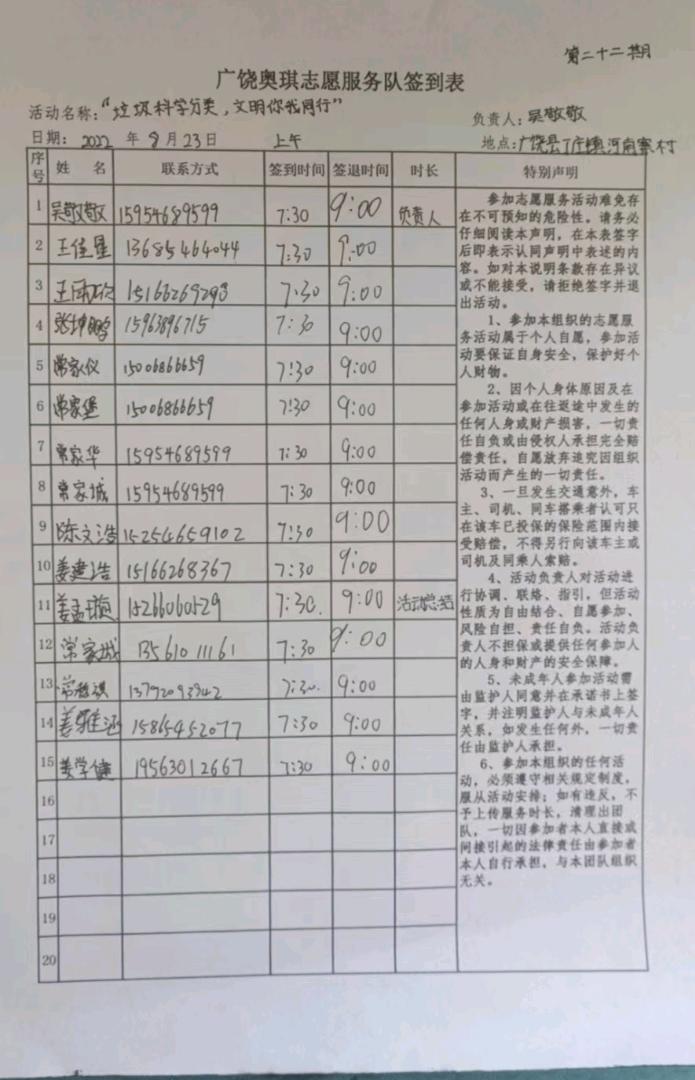 第二十二期
广饶奥琪志愿服务队签到表
活动名称："垃圾科学分类，文明你我同行"
负责人：吴敬敬
日期：2022 年 8 月 23 日 上午
地点：广饶县丁庄镇河南寨村
序号 姓 名 联系方式 签到时间 签退时间 时长 特别声明
1 吴敬敬 15954689599 7:30 9:00 负责人
2 王佳星 13685464044 7:30 9:00
3 15166269293 7:30 9:00
4 张坤鹏 15963896715 7:30 9:00
5 常家仪 15006866659 7:30 9:00
6 常家堡 15006866659 7:30 9:00
7 常家华 15954689599 7:30 9:00
8 常家城 15954689599 7:30 9:00
9 陈文浩 15254659102 7:30 9:00
10 姜建浩 15166268367 7:30 9:00
11 姜孟璇 15266060529 7:30. 9:00 活动总结
12 常家城 13561011161 7:30 9:00
13 13792093342 7:30. 9:00
14 姜雅涵 15865452077 7:30 9:00
15 姜学健 19563012667 7:30 9:00
16
17
18
19
20
参加志愿服务活动难免存
在不可预知的危险性。请务必
仔细阅读本声明，在本表签字
后即表示认同声明中表述的内
容。如对本说明条款存在异议
或不能接受，请拒绝签字并退
出活动。
1、参加本组织的志愿服
务活动属于个人自愿，参加活
动要保证自身安全，保护好个
人财物。
2、因个人身体原因及在
参加活动或在往返途中发生的
任何人身或财产损害，一切责
任自负或由侵权人承担完全赔
偿责任，自愿放弃追究因组织
活动而产生的一切责任。
3、一旦发生交通意外，车
主、司机、同车搭乘者认可只
在该车已投保的保险范围内接
受赔偿，不得另行向该车主或
司机及同乘人索赔。
4、活动负责人对活动进
行协调、联络、指引，但活动
性质为自由结合、自愿参加、
风险自担、责任自负。活动负
责人不担保或提供任何参加人
的人身和财产的安全保障。
5、未成年人参加活动需
由监护人同意并在承诺书上签
字，并注明监护人与未成年人
关系，如发生任何意外，一切责
任由监护人承担。
6、参加本组织的任何活
动，必须遵守相关规定制度，
服从活动安排；如有违反，不
予上传服务时长，清理出团
队，一切因参加者本人直接或
间接引起的法律责任由参加者
本人自行承担，与本团队组织
无关。